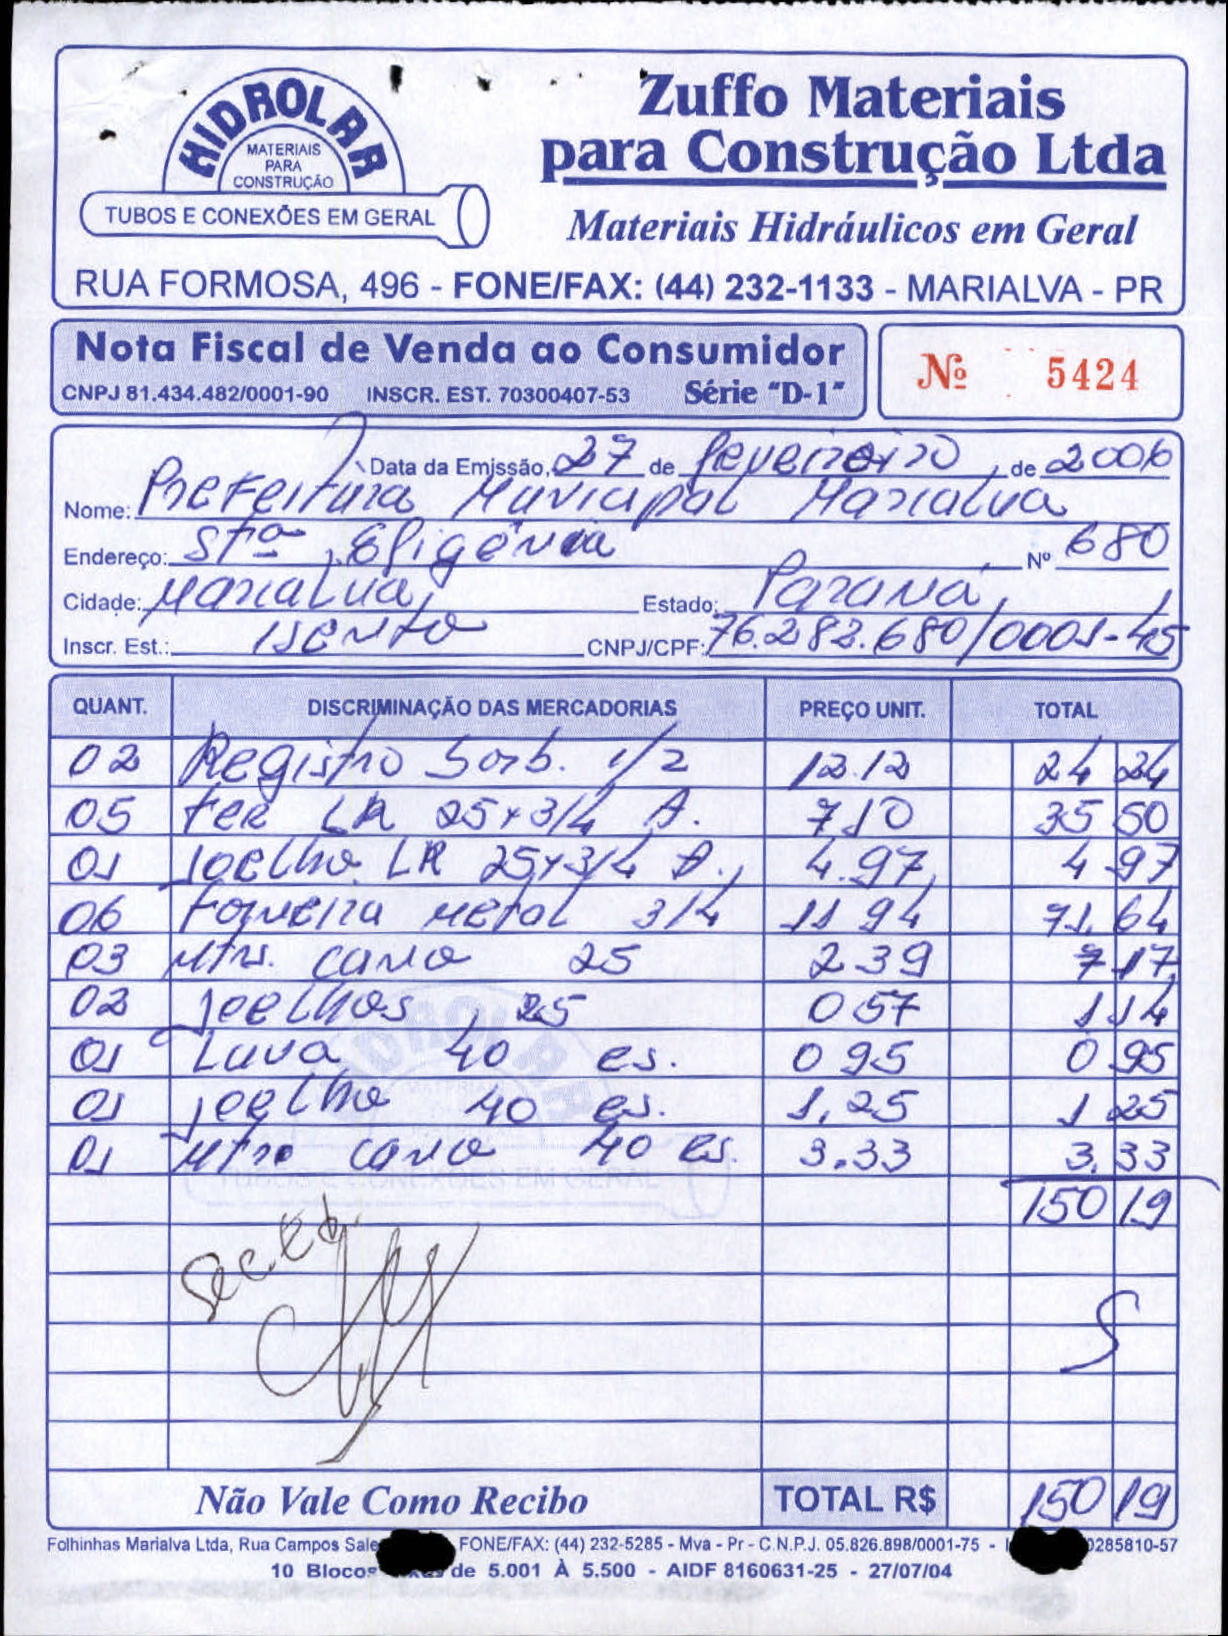 HIDROLAR
MATERIAIS
PARA
CONSTRUÇÃO
TUBOS E CONEXÕES EM GERAL
Zuffo Materiais
para Construção Ltda
Materiais Hidráulicos em Geral
RUA FORMOSA, 496 - FONE/FAX: (44) 232-1133 - MARIALVA - PR
Nota Fiscal de Venda ao Consumidor
CNPJ 81.434.482/0001-90 INSCR. EST. 70300407-53 Série "D-1"
Nº 5424
Data da Emissão, 27 de fevereiro, de 2006
Nome: Prefeitura Municipal Marialva
Endereço: Stª Efigênia Nº 680
Cidade: Marialva Estado: Paraná
Inscr. Est.: Isento CNPJ/CPF: 76.282.680/0001-45
QUANT. DISCRIMINAÇÃO DAS MERCADORIAS PREÇO UNIT. TOTAL
02 Registro Sorb. 1/2 12.12 24 24
05 Tee LR 25x3/4 A. 7 10 35 50
01 Joelho LR 25x3/4 A. 4.97 4 97
06 Torneira Metal 3/4 11 94 71, 64
03 Mtrs. cano 25 2 39 7 17
02 Joelhos 25 0 57 1 14
01 Luva 40 es. 0 95 0 95
01 Joelho 40 es. 1,25 1 25
01 Mtro cano 40 es. 3.33 3.33
150 19
Não Vale Como Recibo TOTAL R$ 150 19
Folhinhas Marialva Ltda, Rua Campos FONE/FAX: (44) 232-5285 - Mva - Pr - C.N.P.J. 05.826.898/0001-75 - 0285810-57
10 Blocos de 5.001 À 5.500 - AIDF 8160631-25 - 27/07/04